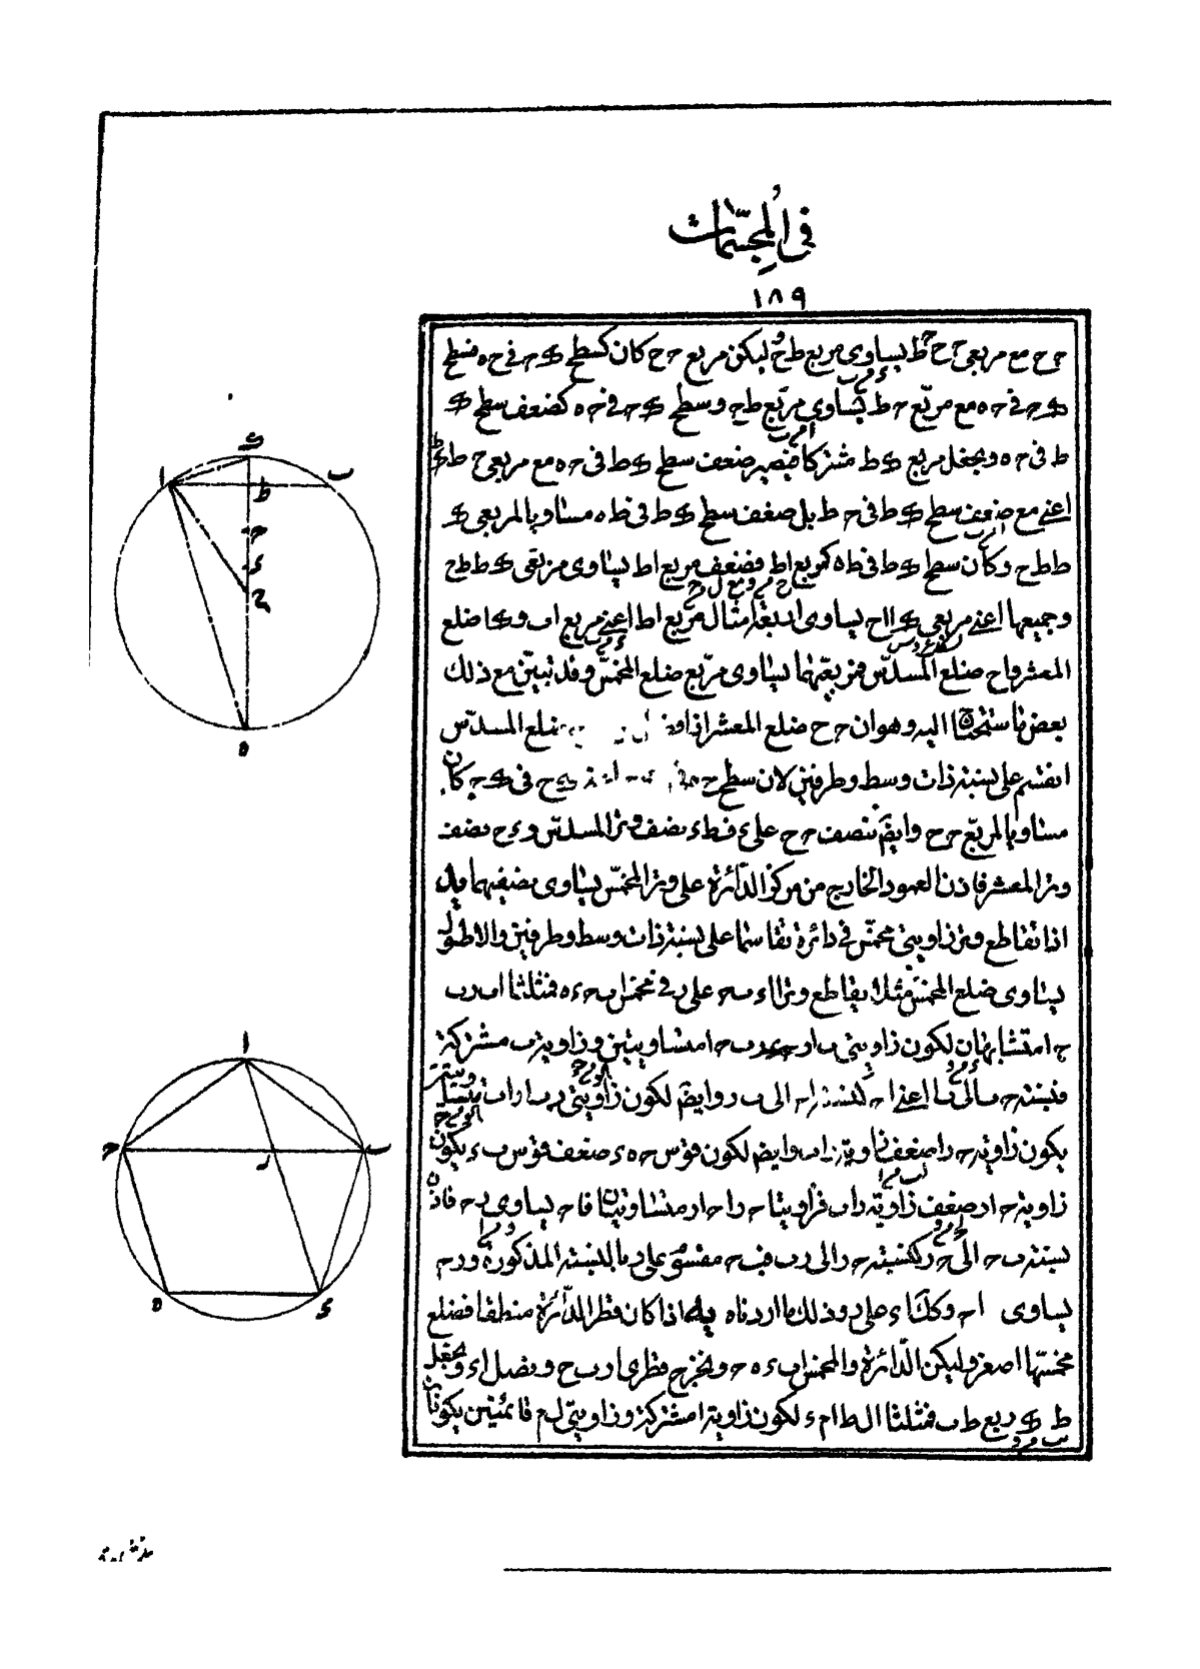 في المجسّمات
١٨٩
ح ح مع مربعي ح ح ط يساوي مربع ط ح وليكن مربع ح ح كان كسطح ك ح في ح ه فسطح
ك ح في ح ه مع مربّع ح ط يساوي مربّع ط ح وسطح ك ح في ح ه كضعف سطح ك
ط في ح ه ونجعل مربع ك ط مشتركا فيصير ضعف سطح ك ط في ح ه مع مربعي ح ط ك ط
اعني مع ضعف سطح ك ط في ح ط بل ضعف سطح ك ط في ط ه مساويا لمربعي ك
ط ط ح وكان سطح ك ط في ط ه كمربع اط فضعف مربع اط يساوي مربعي ك ط ط ح
وجميعها اعني مربعي ك ا ا ح يساوي اربعة امثال مربع اط اعني مربع اب و ك ا ضلع
المعشر و اح ضلع المسدّس فمربعهما يساوي مربّع ضلع المخمّس وقد تبيّن مع ذلك
بعض ما ستحتاج اليه وهو ان ح ح ضلع المعشر اذا ضلع المسدّس
انقسم على نسبة ذات وسط وطرفين لان سطح ح في ك ح كان
مساويا لمربّع ح ح وايضا ننصف ح ح على ء فط ء نصف وتر المسدّس و ء ح نصف
وتر المعشر فاذن العمود الخارج من مركز الدّائرة على وتر المخمّس يساوي نصفيهما يد
اذا تقاطع وترا زاويتي مخمّس في دائرة تقاسما على نسبة ذات وسط وطرفين والاطول
يساوي ضلع المخمّس مثلا يقاطع وترا ا ء ب ح على ر في مخمّس ا ب ء ه ح فمثلثا اب ر ب
ح ا متشابهان لكون زاويتي ب ا ر ح ب ا متساويتين وزاوية ب مشتركة
فنسبة ح ب الى ب ا اعني ا ح كنسبة ا ب الى ب ر وايضا لكون زاويتي ر ب ا ر ا ب متساويتين
يكون زاوية ح ر ا ضعف زاوية ر ا ب وايضا لكون قوس ح ه ء ضعف قوس ب ء يكون
زاوية ح ا ر ضعف زاوية ر ا ب فزاويتا ح ر ا ح ا ر متساويتان فا ح يساوي ر ح فاذن
نسبة ب ح الى ح ر كنسبة ح ر الى ر ب فب ح مقسوم على ر بالنسبة المذكورة و ر ح
يساوي ا ح وكذا ا ء على ر وذلك ما اردناه يه اذا كان قطر الدّائرة منطقا فضلع
مخمّسها اصغر وليكن الدّائرة والمخمّس ا ب ء ه ح ونخرج قطري ا ر ب ح ونصل ا ء ونجعل
ط ك ربع ط ب فمثلثا ا ل ط ا م ء لكون زاوية ا مشتركة وزاويتي ل م قائمتين يكونان
ك
ا
ب
ط
ح
ء
ح
ه
ا
ح
ب
ر
ه
ء